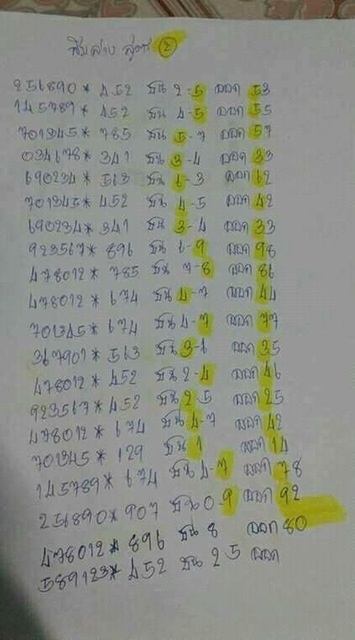 สิบล่าง สูตร 2
256890* 452 ยืน 2-5 ออก 53
145789* 452 ยืน 4-5 ออก 55
701345* 785 ยืน 5-7 ออก 57
034678* 341 ยืน 3-4 ออก 33
690234* 563 ยืน 6-3 ออก 62
701345* 452 ยืน 4-5 ออก 42
690234* 341 ยืน 3-4 ออก 33
923567* 896 ยืน 6-9 ออก 98
478012* 785 ยืน 7-8 ออก 86
478012* 674 ยืน 4-7 ออก 44
701345* 674 ยืน 4-7 ออก 77
367901* 563 ยืน 3-6 ออก 35
478012* 452 ยืน 2-4 ออก 46
923567* 452 ยืน 2-5 ออก 25
478012* 674 ยืน 4-7 ออก 42
701345* 129 ยืน 1 ออก 14
145789* 674 ยืน 4-7 ออก 78
256890* 907 ยืน 0-9 ออก 92
478012* 896 ยืน 8 ออก 80
589123* 452 ยืน 25 ออก